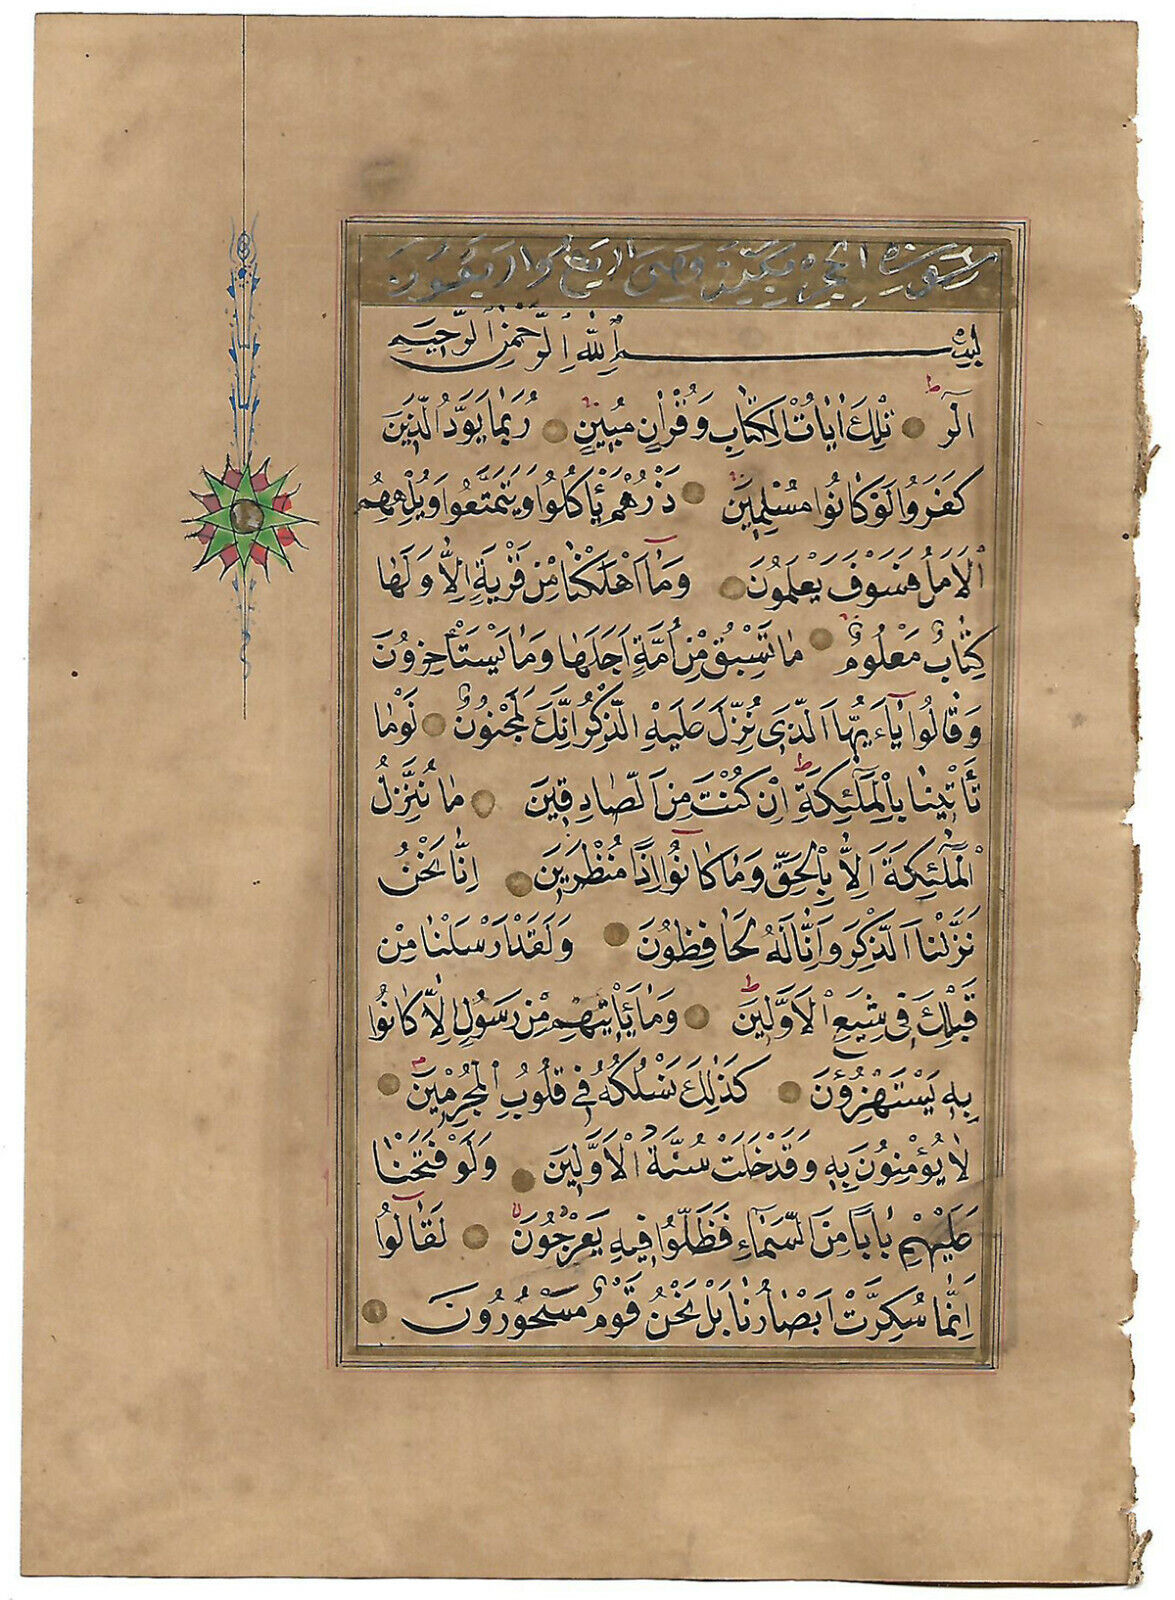 سورة الحجر مكية وهي
بسم الله الرحمن الرحيم
الر تلك ايات الكتاب وقران مبين ربما يود الذين
كفروا لو كانوا مسلمين ذرهم يأكلوا ويتمتعوا ويلههم
الامل فسوف يعلمون وما اهلكنا من قرية الا ولها
كتاب معلوم ما تسبق من امة اجلها وما يستأخرون
وقالوا ياءيها الذي نزل عليه الذكر انك لمجنون لوما
تأتينا بالملئكة ان كنت من الصادقين ما ننزل
الملئكة الا بالحق وما كانوا اذا منظرين انا نحن
نزلنا الذكر وانا له لحافظون ولقد ارسلنا من
قبلك في شيع الاولين وما يأتيهم من رسول الا كانوا
به يستهزؤن كذلك نسلكه في قلوب المجرمين
لا يؤمنون به وقد خلت سنة الاولين ولو فتحنا
عليهم بابا من السماء فظلوا فيه يعرجون لقالوا
انما سكرت ابصارنا بل نحن قوم مسحورون